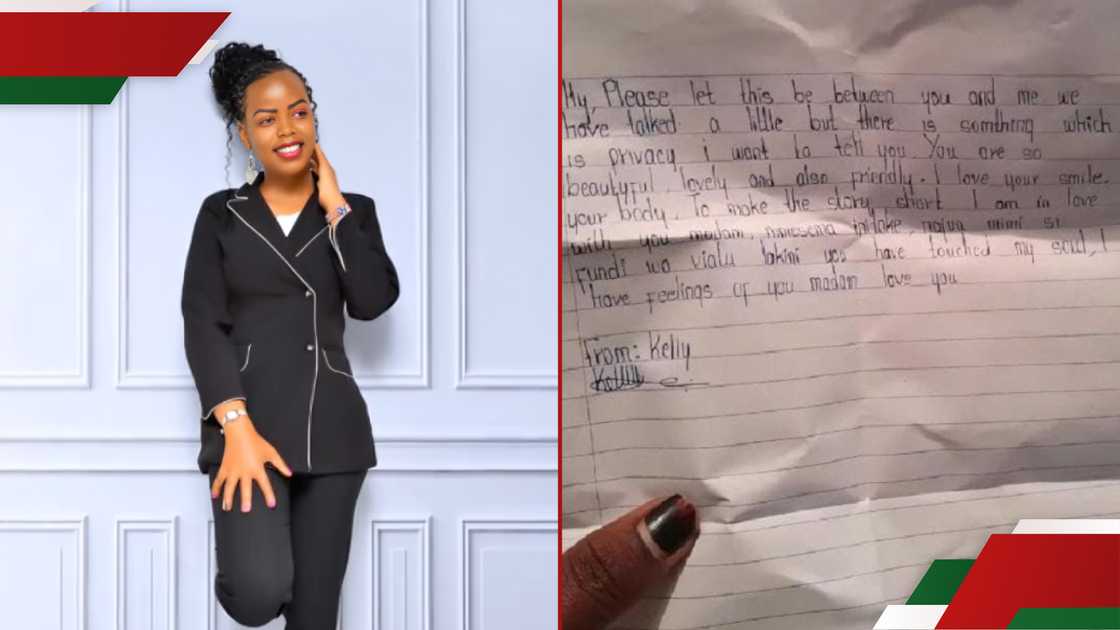 Hy, Please let this be between you and me we
have talked a little but there is somthing which
is privacy i want to tell you. You are so
beautyful, lovely and also friendly. I love your smile.
your body. To make the story short I am in love
with you madam, najua mimi si
fundi wa viatu lakini you have touched my soul, I
have feelings of you madam love you
From: Kelly